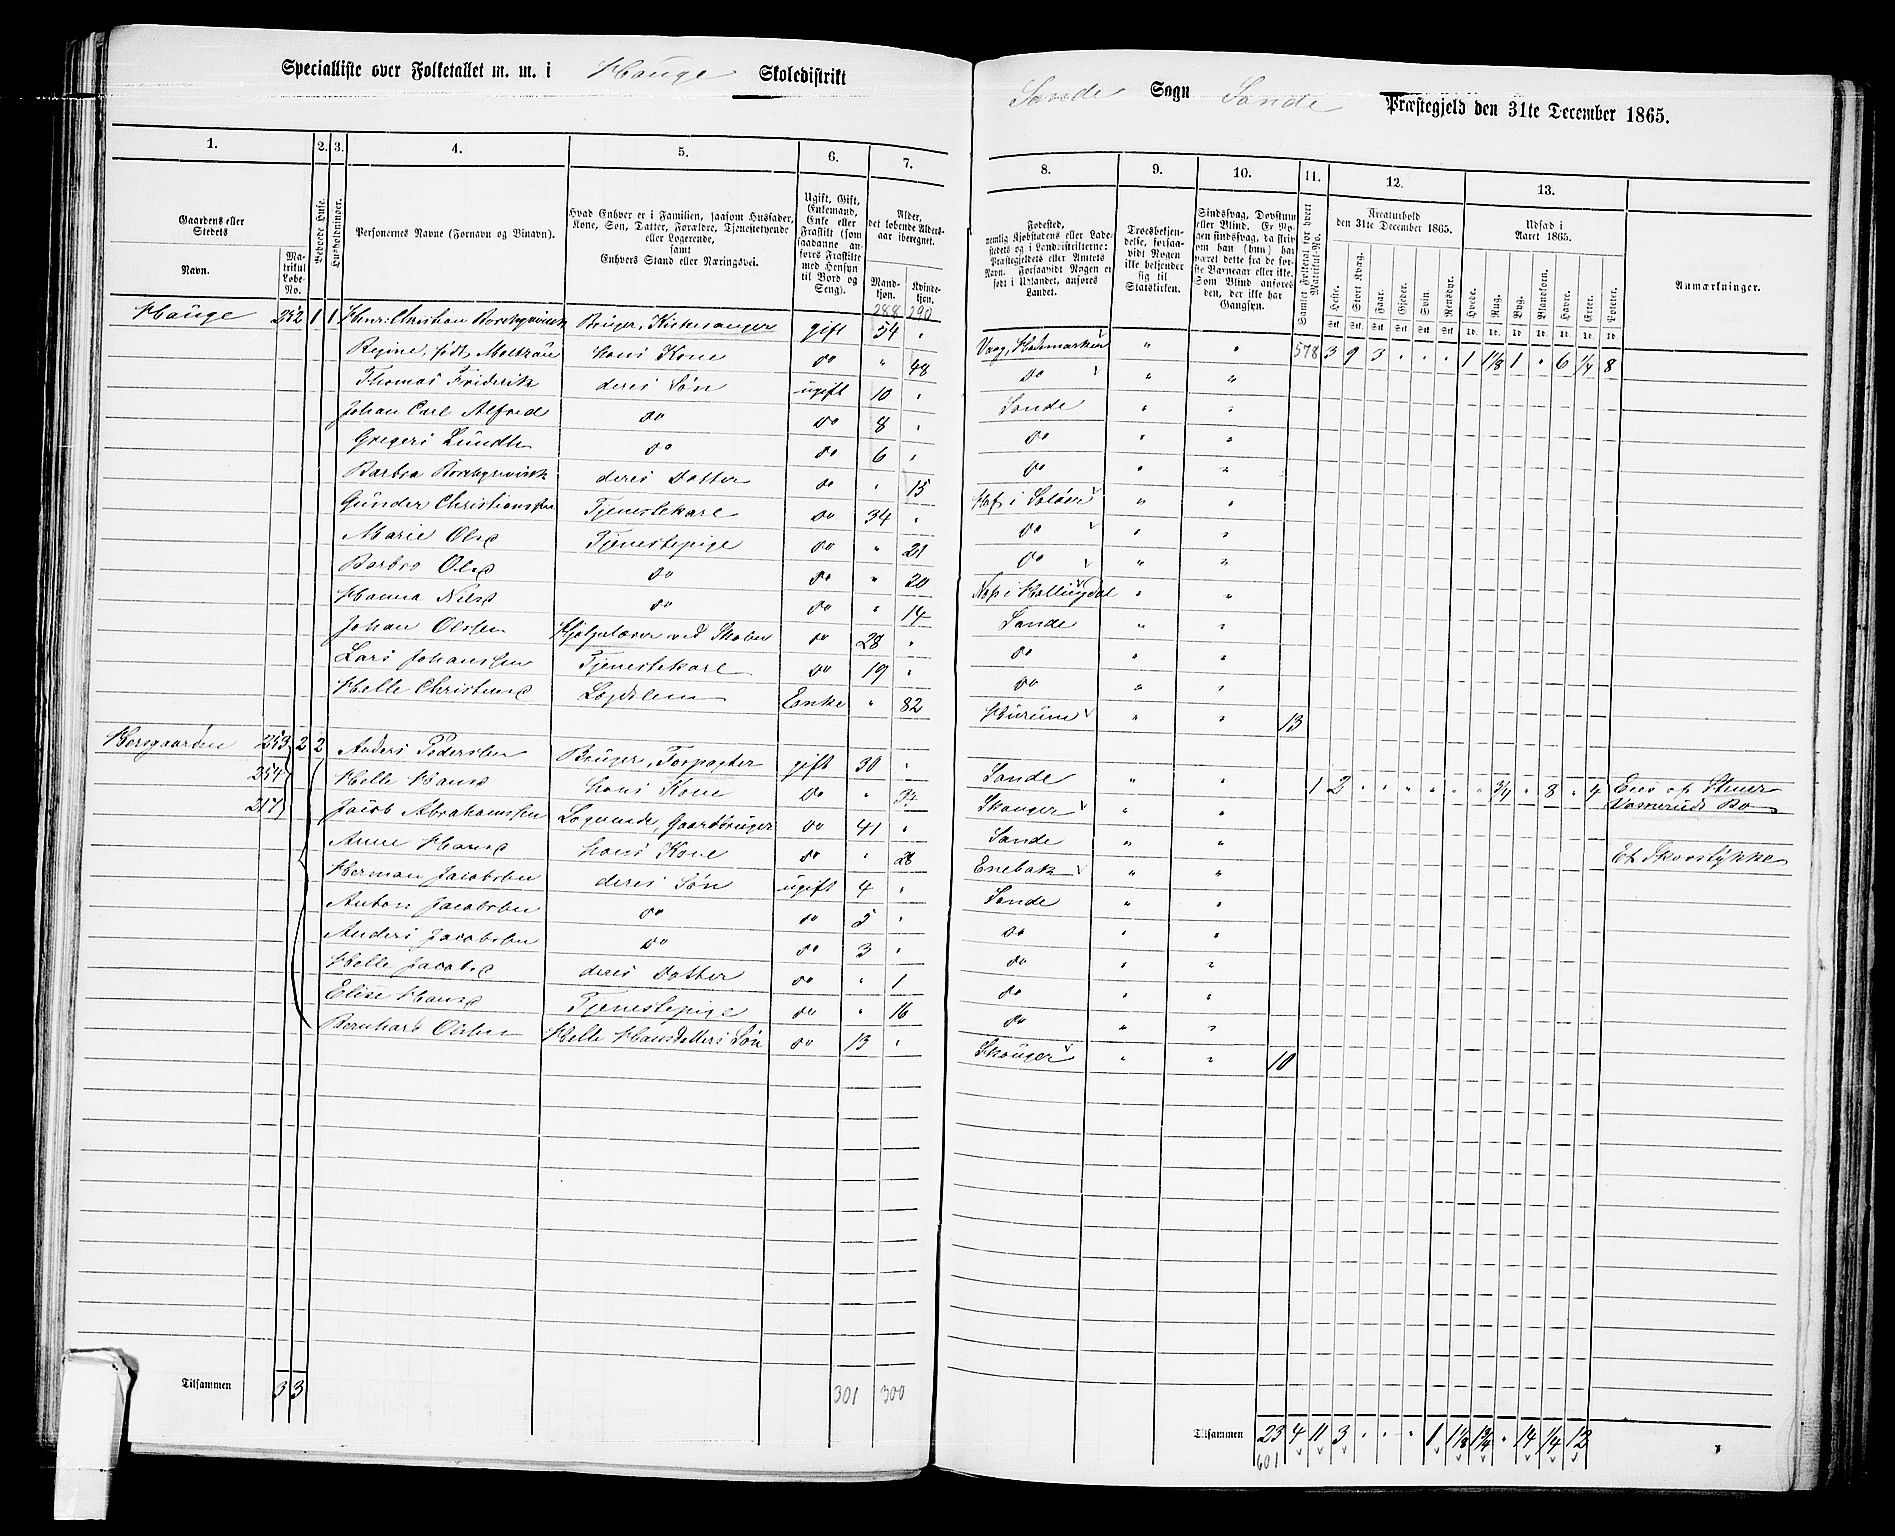 Specialliste over Folketallet m. m. i Hauge Skoledistrikt
Sande Sogn Sande Præstegjeld den 31te December 1865.
1. 2. 3. 4. 5. 6. 7.
8. 9. 10. 11. 12. 13.
Gaardens eller Stedets
Navn.
Matrikul Løbe-No.
Beboede Huse.
Husholdninger.
Personernes Navne (Fornavn og Tilnavn).
Hvad Enhver er i Familien, saasom Husfader, Kone, Søn, Datter, Forældre, Tjenestetyende eller Logerende, samt Enhvers Stand eller Næringsvei.
Ugift, Gift, Enkemand, Enke eller Fraskilt (som saadanne anføres Fraskilte med Hensyn til Bord og Seng).
Alder, det løbende Aldersaar iberegnet.
Mandkjøn. Kvindekjøn.
Fødested,
Troesbekjendelse, forsaavidt Nogen ikke bekjender sig til Statskirken.
Kreaturhold den 31te December 1865.
Heste. Stort Kvæg. Faar. Gjeder. Svin. Rensdyr.
Udsæd i Aaret 1865.
Hvede. Rug. Byg. Blandkorn. Havre. Erter. Poteter.
Anmærkninger.
288 290
Hauge 252 1 1 Henr: Christian Bruger, Kirkesanger gift 54 "
Regine, født hans Kone do " 48
Thomas Friderik deres Søn ugift 10 " Sande " "
Johan Carl Alfred do do 8 " do " "
Gregers do do 6 " do " "
Barbra deres Datter do " 15
Gunder Tjenestekarl do 34 " do " "
Marie Olsd Tjenestepige do " 21 do " "
Barbro Olsd do do " 20
Hanna Nilsd do do " 14 Sande " "
Johan Olssen do 28 " do " "
Lars Johanssen Tjenestekarl do 19 " do " "
Helle Christensd Enke " 82 Hurum " " 13
578 3 9 3 " " " 1 1 1/8 1 " 6 1/4 8
253 2 2 Anders Pederssen Bruger, Forpagter gift 30 " Sande " " 1 2 " " " " " 3/4 " 8 " 4 Eies af
254 Helle Hansd hans Kone do " Skouger " "
217 Jacob Abrahamssen Logerende, Gaardbruger do 41 " Sande " "
Anne Hansd hans Kone do " 28 Enebak " "
Herman Jacobsen deres Søn ugift 4 " Sande " "
Anton Jacobsen do do 5 " do " "
Anders Jacobsen do do 3 " do " "
Helle Jacobsd deres Datter do " 1 do " "
Elise Hansd Tjenestepige do " 16 do " "
Bernhard Olssen Helle Hansdatters Søn do 13 " Skouger " " 10
Tilsammen 3 3 301 300
Tilsammen 23 4 11 3 " " " 1 1 1/8 1 3/4 " 14 1/4 12
601